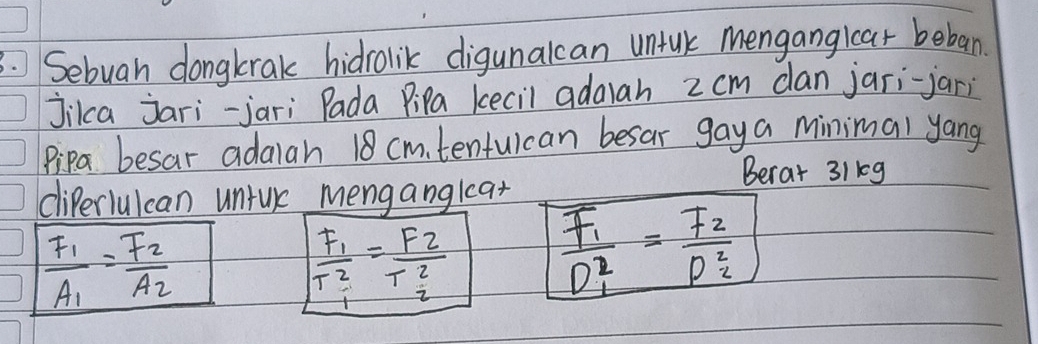 3. Sebuah dongkrak hidrolik digunakan untuk mengangkat beban.
Jika Jari-jari Pada Pipa kecil adalah 2 cm dan jari-jari
Pipa besar adalah 18 cm. tentukan besar gaya minimal yang
diperlukan untuk mengangkat Berat 31 kg
F1/A1 = F2/A2 F1/T²1 = F2/T²2 F1/D²1 = F2/D²2